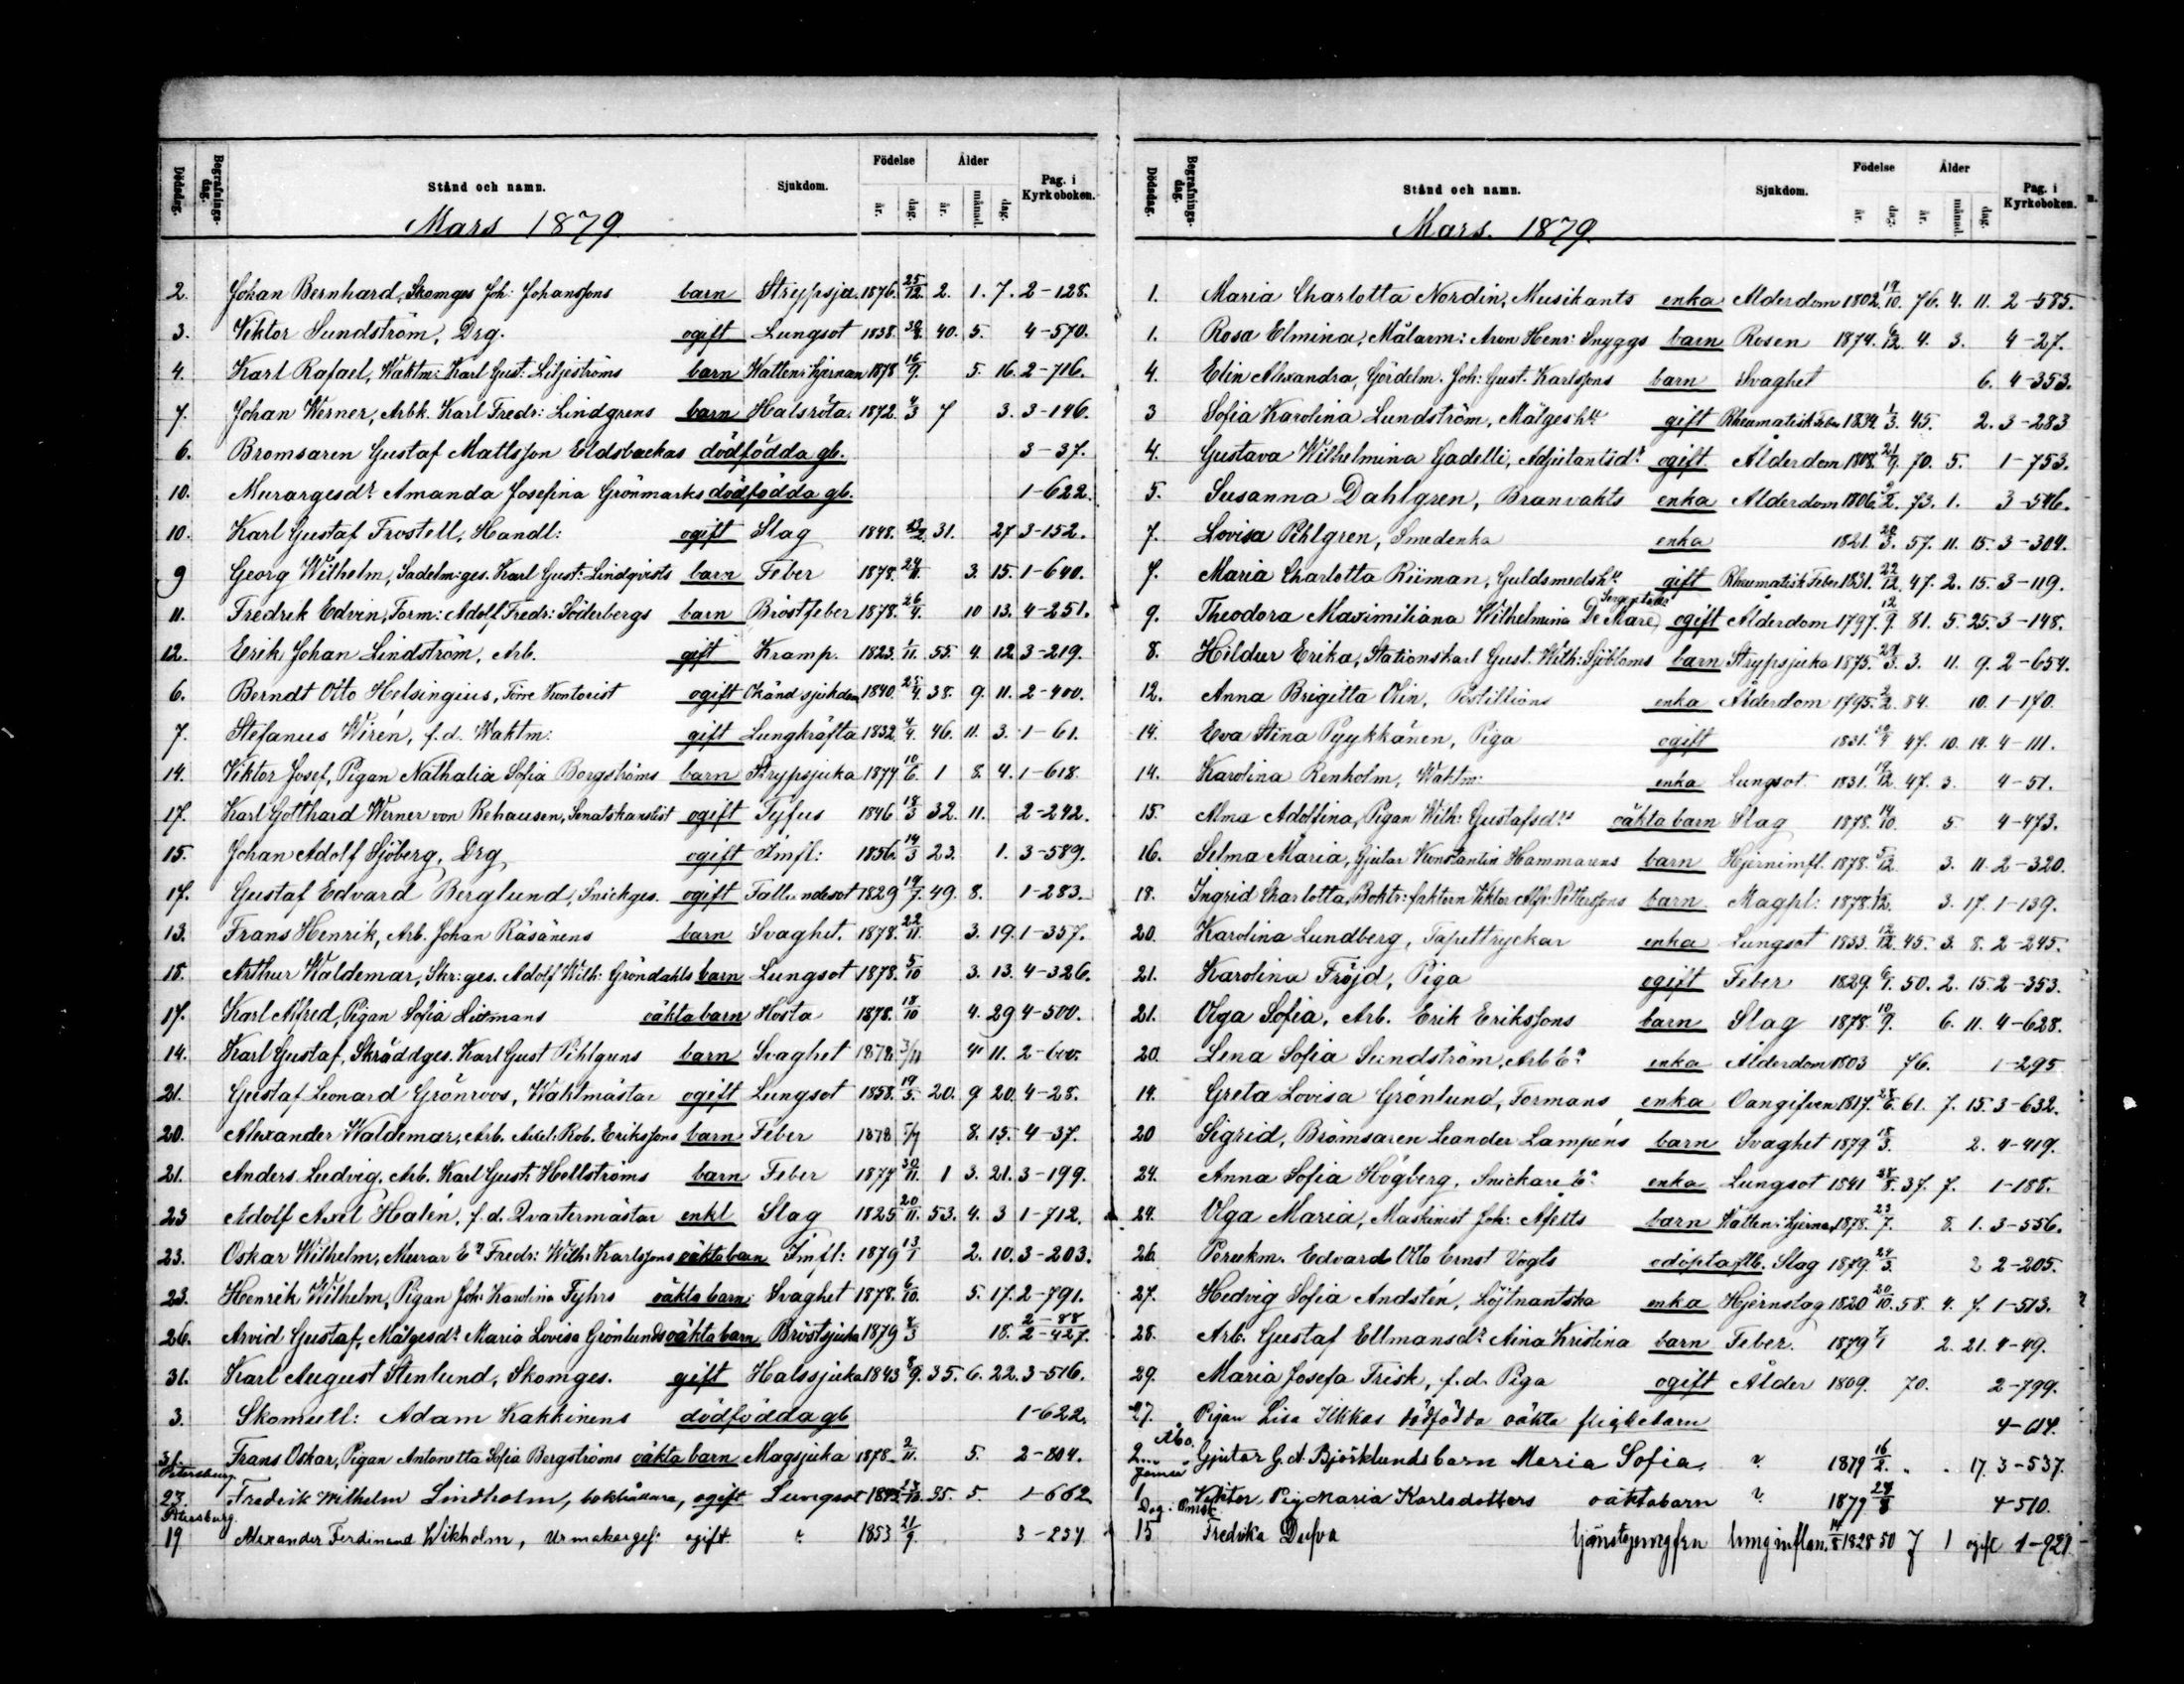 Dödsdag. Begrafningsdag. Stånd och namn. Sjukdom. Födelse år. dag. Ålder år. månad. dag. Pag. i Kyrkoboken.
Mars 1879
2. Johan Bernhard, Skomges Joh: Johanssons barn Strypsju. 1876. 25/12 2. 1. 7. 2-128.
3. Viktor Sundström, Drg. ogift Lungsot 1838. 40. 5. 4-570.
4. Karl Rafael, Waktm: Karl Gust. Liljeströms barn Watten i hjernan 1878 16/9. 5. 16. 2-716.
7. Johan Werner, Arbk. Karl Fredr: Lindgrens barn Halsröta. 1872. 4/3 7 3. 3-146.
6. Bromsaren Gustaf Mattsson Eldsbackas dödfödda gb. 3-37.
10. Murargesdr Amanda Josefina Grönmarks dödfödda gb. 1-622.
10. Karl Gustaf Frostell, Handl: ogift Slag 1848. 31. 27 3-152.
9 Georg Wilhelm, Sadelm: ges. Karl Gust: Lindqvists barn Feber 1878. 24/11. 3. 15. 1-640.
11. Fredrik Edvin, Form: Adolf Fredr: Söderbergs barn Bröstfeber 1878. 26/4. 10 13. 4-251.
12. Erik Johan Lindström, Arb. gift Kramp. 1823. 1/11. 55. 4. 12 3-219.
6. Berndt Otto Helsingius, Förre Kontorist ogift Okänd sjukdom 1840. 25/4. 38. 9. 11. 2-400.
7. Stefanus Wirén, f.d. Waktm: gift Lungkräfta 1832. 4/4. 46. 11. 3. 1-61.
14. Viktor Josef, Pigan Nathalia Sofia Borgströms barn Strypsjuka 1877 10/6. 1 8. 4. 1-618.
17. Karl Gotthard Werner von Rehausen, Senatskanslist ogift Tyfus 1846 18/3 32. 11. 2-242.
15. Johan Adolf Sjöberg, Drg ogift Imfl: 1856. 14/3 23. 1. 3-589.
17. Gustaf Edvard Berglund, Snickges. ogift Fallandesot 1829 19/7. 49. 8. 1-283.
13. Frans Henrik, Arb. Johan Räsänens barn Svaghet. 1878. 22/11. 3. 19. 1-357.
18. Arthur Waldemar, Skr: ges. Adolf Wilh: Gröndahls barn Lungsot 1878. 5/10 3. 13. 4-326.
17. Karl Alfred, Pigan Sofia Lidmans oäkta barn Hosta 1878. 18/10 4. 29 4-500.
14. Karl Gustaf, Skräddges. Karl Gust Pihlgrens barn Svaghet 1878. 3/11 4. 11. 2-600.
21. Gustaf Leonard Grönroos, Waktmästar ogift Lungsot 1858. 19/5. 20. 9 20. 4-28.
20. Alexander Waldemar, Arb. Axel: Rob. Erikssons barn Feber 1878 5/7 8. 15. 4-37.
21. Anders Ludvig, Arb. Karl Gust: Hellströms barn Feber 1877 30/11. 1 3. 21. 3-199.
23 Adolf Axel Halén, f.d. Qvartermästar enkl Slag 1825 20/11. 53. 4. 3 1-712.
23. Oskar Wilhelm, Murar Ea Fredr: Wilh: Karlssons oäkta barn Imfl: 1879 13/1 2. 10. 3-203.
23. Henrik Wilhelm, Pigan Joh: Karolina Fyhrs oäkta barn Svaghet 1878. 6/10. 5. 17. 2-791.
26. Arvid Gustaf, Målgesdr Maria Lovisa Grönlunds oäkta barn Bröstsjuka 1879 8/3 18. 2-88 2-427.
31. Karl August Stenlund, Skomges. gift Halssjuka 1843 8/9. 35. 6. 22. 3-516.
3. Skomutl: Adam Kakkinens dödfödda gb 1-622.
31. Frans Oskar, Pigan Antonetta Sofia Bergströms oäkta barn Magsjuka 1878 2/11. 5. 2-804.
Petersburg.
23. Fredrik Wilhelm Lindholm, bokhållare, ogift Lungsot 35. 5. 1-662.
Petersburg.
19 Alexander Ferdinand Wikholm, Urmakargef: ogift. 1853 21/9. 3-237
Dödsdag. Begrafningsdag. Stånd och namn. Sjukdom. Födelse år. dag. Ålder år. månad. dag. Pag. i Kyrkoboken.
Mars. 1879.
1. Maria Charlotta Nordin, Musikants enka Ålderdom 1802. 19/10. 76. 4. 11. 2-585.
1. Rosa Elmina, Målarm: Aron Henr: Snyggs barn Rosen 1874. 12. 4. 3. 4-27.
4. Elin Alexandra, Gördelm. Joh: Gust. Karlssons barn Svaghet 6. 4-353.
3 Sofia Karolina Lundström, Målges hu gift Rheumatisk Feber 1834. 1/3. 45. 2. 3-283
4. Gustava Wilhelmina Gadelli, Adjutantsdr ogift Ålderdom 1808. 21/9. 70. 5. 1-753.
5. Susanna Dahlgren, Branvakts enka Ålderdom 1806. 2. 73. 1. 3-546.
7. Lovisa Pihlgren, Smedenka enka 1821. 20/3. 57. 11. 15. 3-304.
7. Maria Charlotta Riiman, Guldsmedshu gift Rheumatisk Feber 1831. 22/12. 47. 2. 15. 3-119.
9. Theodora Maximiliana Wilhelmina De Maré ogift Ålderdom 1797. 12/9 81. 5. 25. 3-148.
8. Hildur Erika, Stationskarl Gust. Wilh: Sjöbloms barn Strypsjuka 1875. 29/3. 3. 11. 9. 2-654.
12. Anna Brigitta Olin, Postillions enka Ålderdom 1795. 2/2. 84. 10. 1-170.
14. Eva Stina Pyykkänen, Piga ogift 1831. 47. 10. 14. 4-111.
14. Karolina Renholm, Waktm: enka Lungsot 1831. 14/12. 47. 3. 4-51.
15. Alma Adolfina, Pigan Wilh: Gustafsdrs oäkta barn Slag 1878. 14/10. 5. 4-473.
16. Selma Maria, Gjutar Konstantin Hammarens barn Hjerninfl. 1878. 5/12. 3. 11. 2-320.
18. Ingrid Charlotta, Boktr: faktorn Viktor Alfr: Pettersons barn Magpl: 1878. 3. 17. 1-139.
20. Karolina Lundberg, Tapettryckar enka Lungsot 1833. 12/12. 45. 3. 8. 2-245.
21. Karolina Fröjd, Piga ogift Feber 1829. 6/1. 50. 2. 15. 2-353.
21. Olga Sofia, Arb. Erik Erikssons barn Slag 1878. 10/9. 6. 11. 4-628.
20. Lena Sofia Sundström, Arb Ea enka Ålderdom 1803 76. 1-295
14. Greta Lovisa Grönlund, Formans enka Oangifven 1817. 28/6. 61. 7. 15. 3-632.
20 Sigrid, Bromsaren Leander Lampéns barn Svaghet 1879 18/3. 2. 4-419.
24. Anna Sofia Högberg, Snickare Ea enka Lungsot 1841 28/8. 37. 7. 1-188.
24. Olga Maria, Maskinist Joh: Afelts barn Watten i hjernan 1878. 23/7. 8. 1. 3-556.
26. Perukm. Edvard Otto Ernst Vogts odöpta flb. Slag 1879. 24/3. 2 2-205.
27. Hedvig Sofia Andstén, Löjtnantska enka Hjernslag 1820 20/10. 58. 4. 7. 1-513.
28. Arb. Gustaf Ellmansdr Aina Kristina barn Feber. 1879 7/1 2. 21. 4-49.
29. Maria Josefa Frisk, f.d. Piga ogift Ålder 1809. 70. 2-799.
27. Pigan Lisa Ilkkas dödfödda oäkta flickebarn 4-614.
Åbo.
2. Gjutar G.A. Björklunds barn Maria Sofia. 1879 16/2. 17. 3-537.
1 Viktor, Pig Maria Karlsdotters oäktabarn 1879 4-510.
15 Fredrika Dufva tjänstejungfru lunginflam. 14/8 1828 50 7 1 ogift 1-921